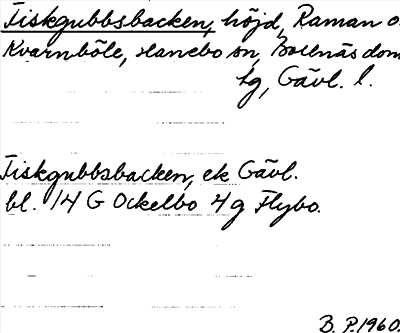 Fiskgubbsbacken, höjd, Raman o.
Kvarnböle, Hanebo sn, Bollnäs dom
lg, Gävl. l.
Fiskgubbsbacken, ek Gävl.
bl. 14 G Ockelbo 4g Flybo.
B. P. 1960.